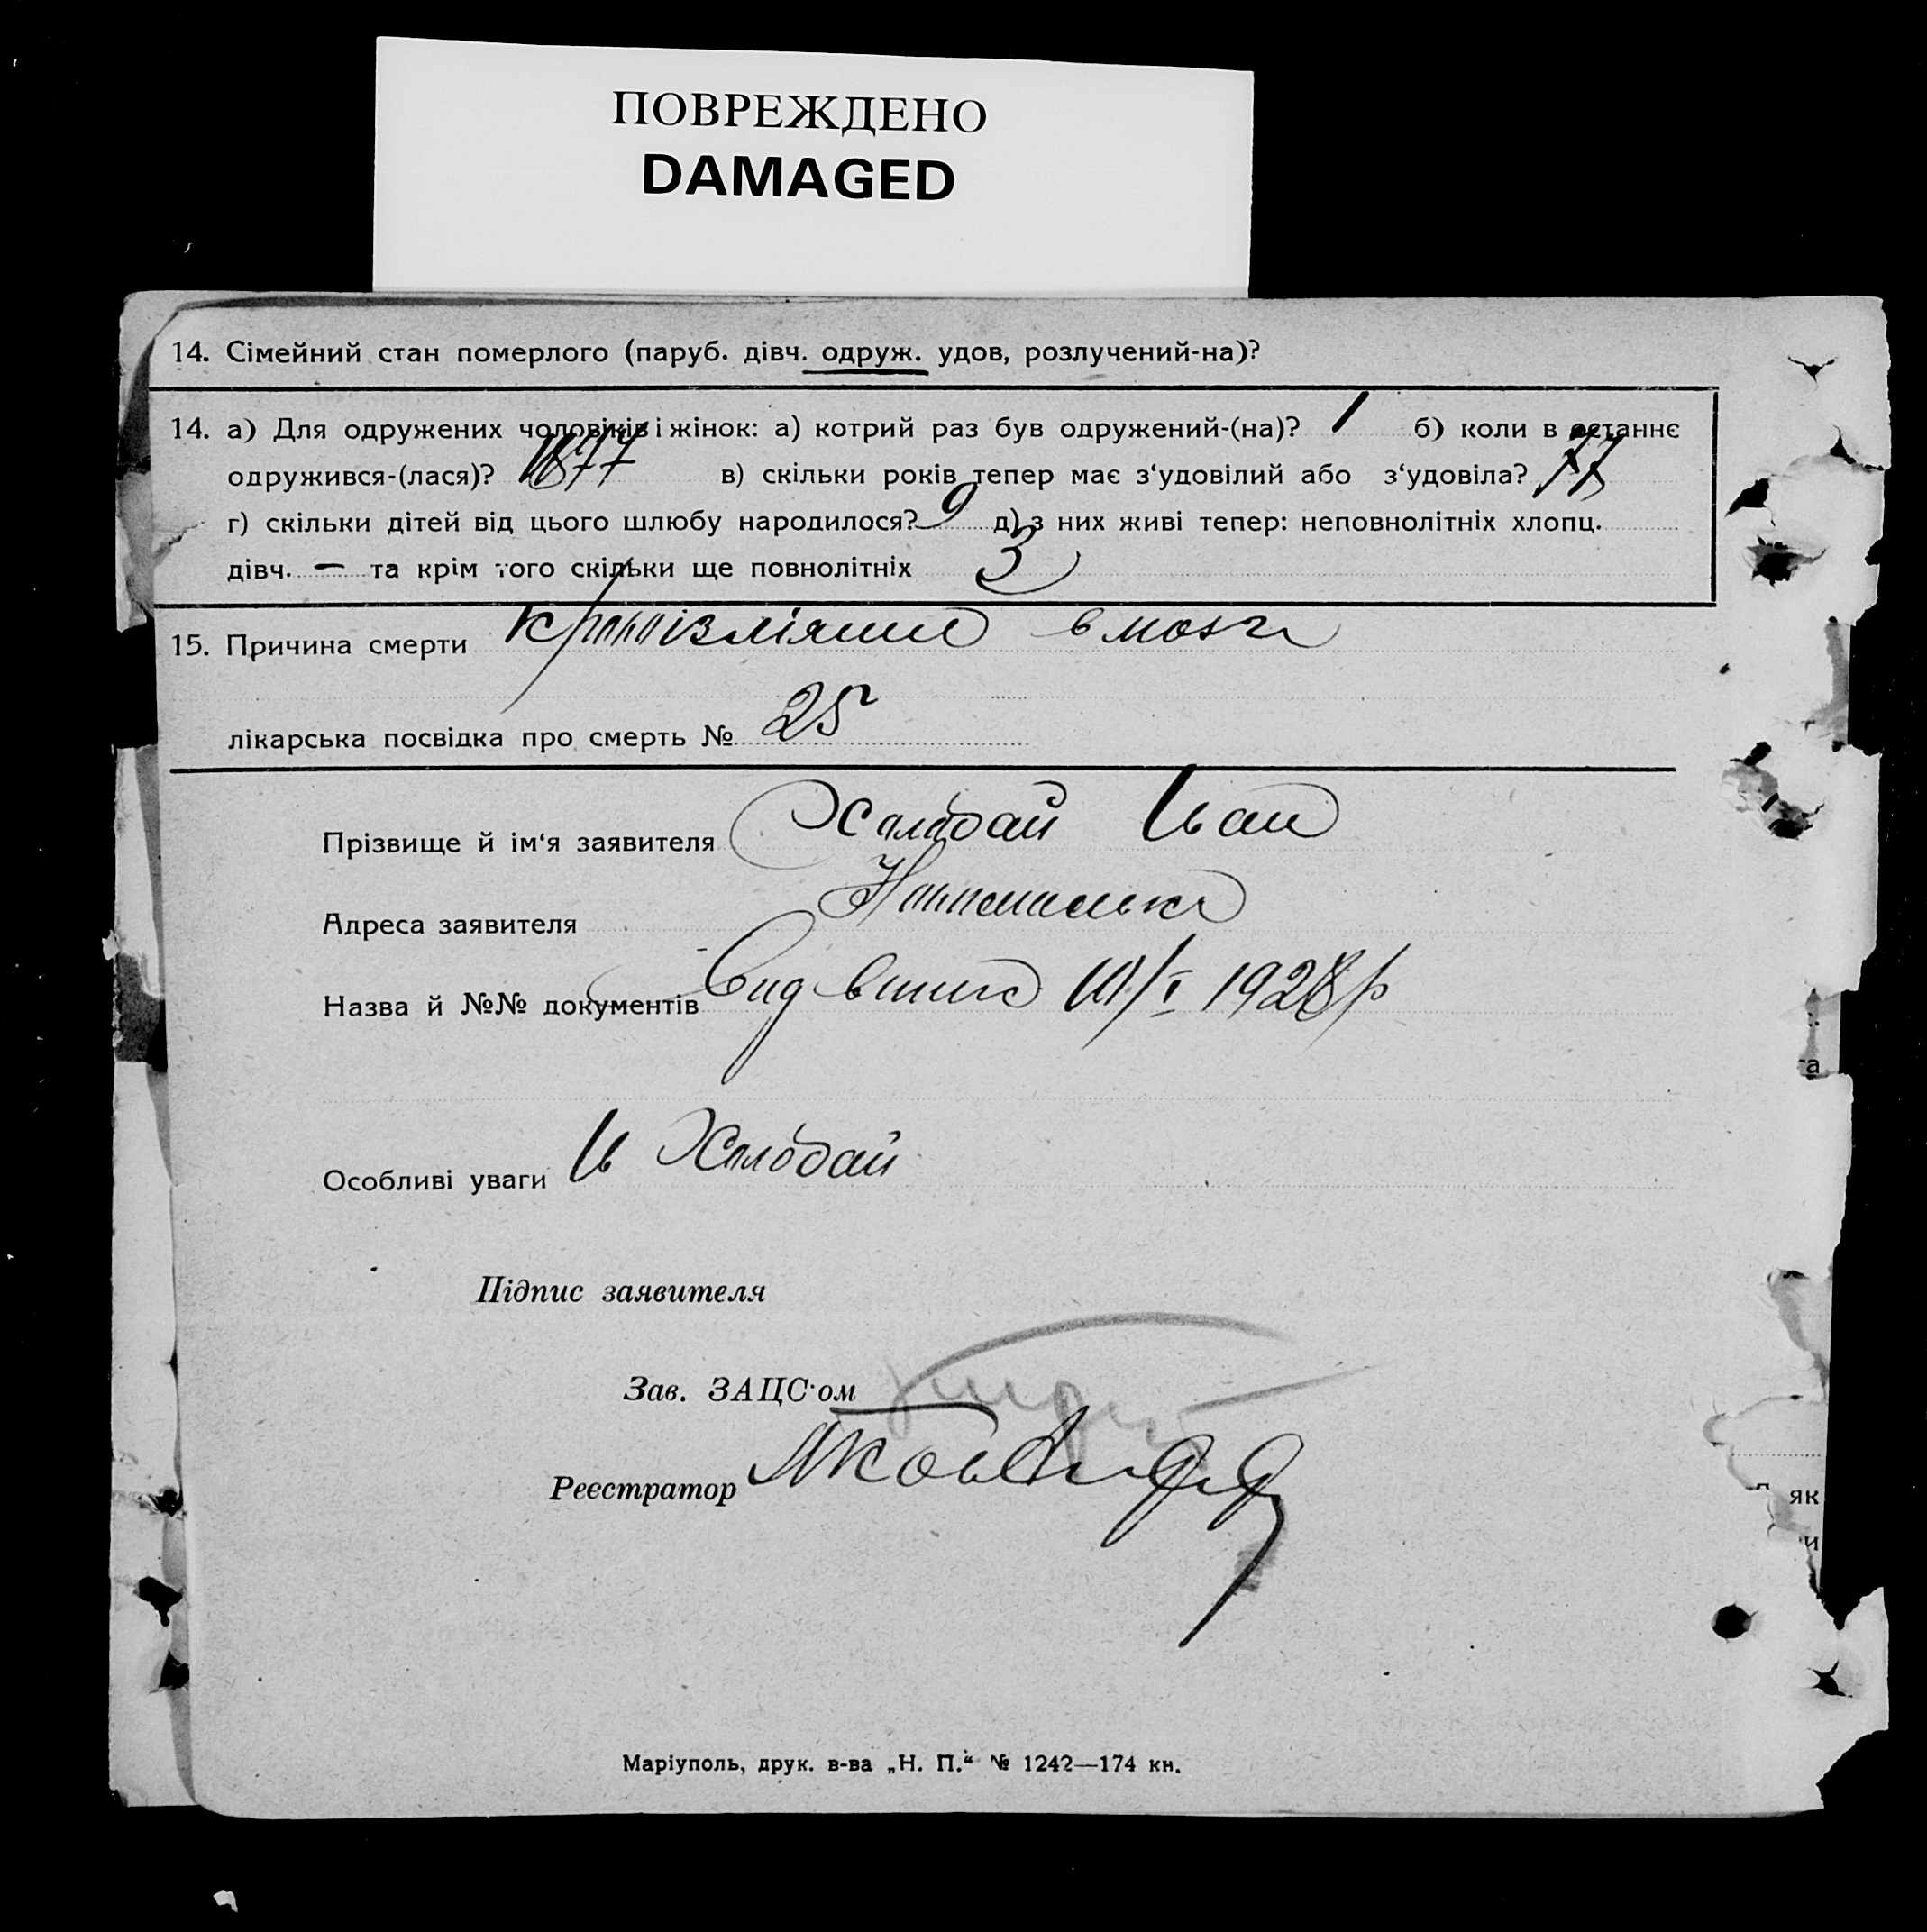 ПОВРЕЖДЕНО
DAMAGED
14. Сімейний стан померлого (паруб. дівч. одруж. удов, розлучений-на)?
14. а) Для одружених чоловіків і жінок: а) котрий раз був одружений-(на)? 1 б) коли в останнє
одружився-(лася)? 1877 в) скільки років тепер має з‘удовілий або з‘удовіла? 77
г) скільки дітей від цього шлюбу народилося? 9 д) з них живі тепер: неповнолітніх хлопц.
дівч. — та крім того скільки ще повнолітніх 3
15. Причина смерти в мозг
лікарська посвідка про смерть № 25
Прізвище й ім‘я заявителя Холодай Іван
Адреса заявителя
Назва й №№ документів 1928 р
Особливі уваги Холодай
Підпис заявителя
Зав. ЗАЦС‘ом
Реєстратор
Маріуполь, друк. в-ва „Н. П.“ № 1242—174 кн.
та
як
и